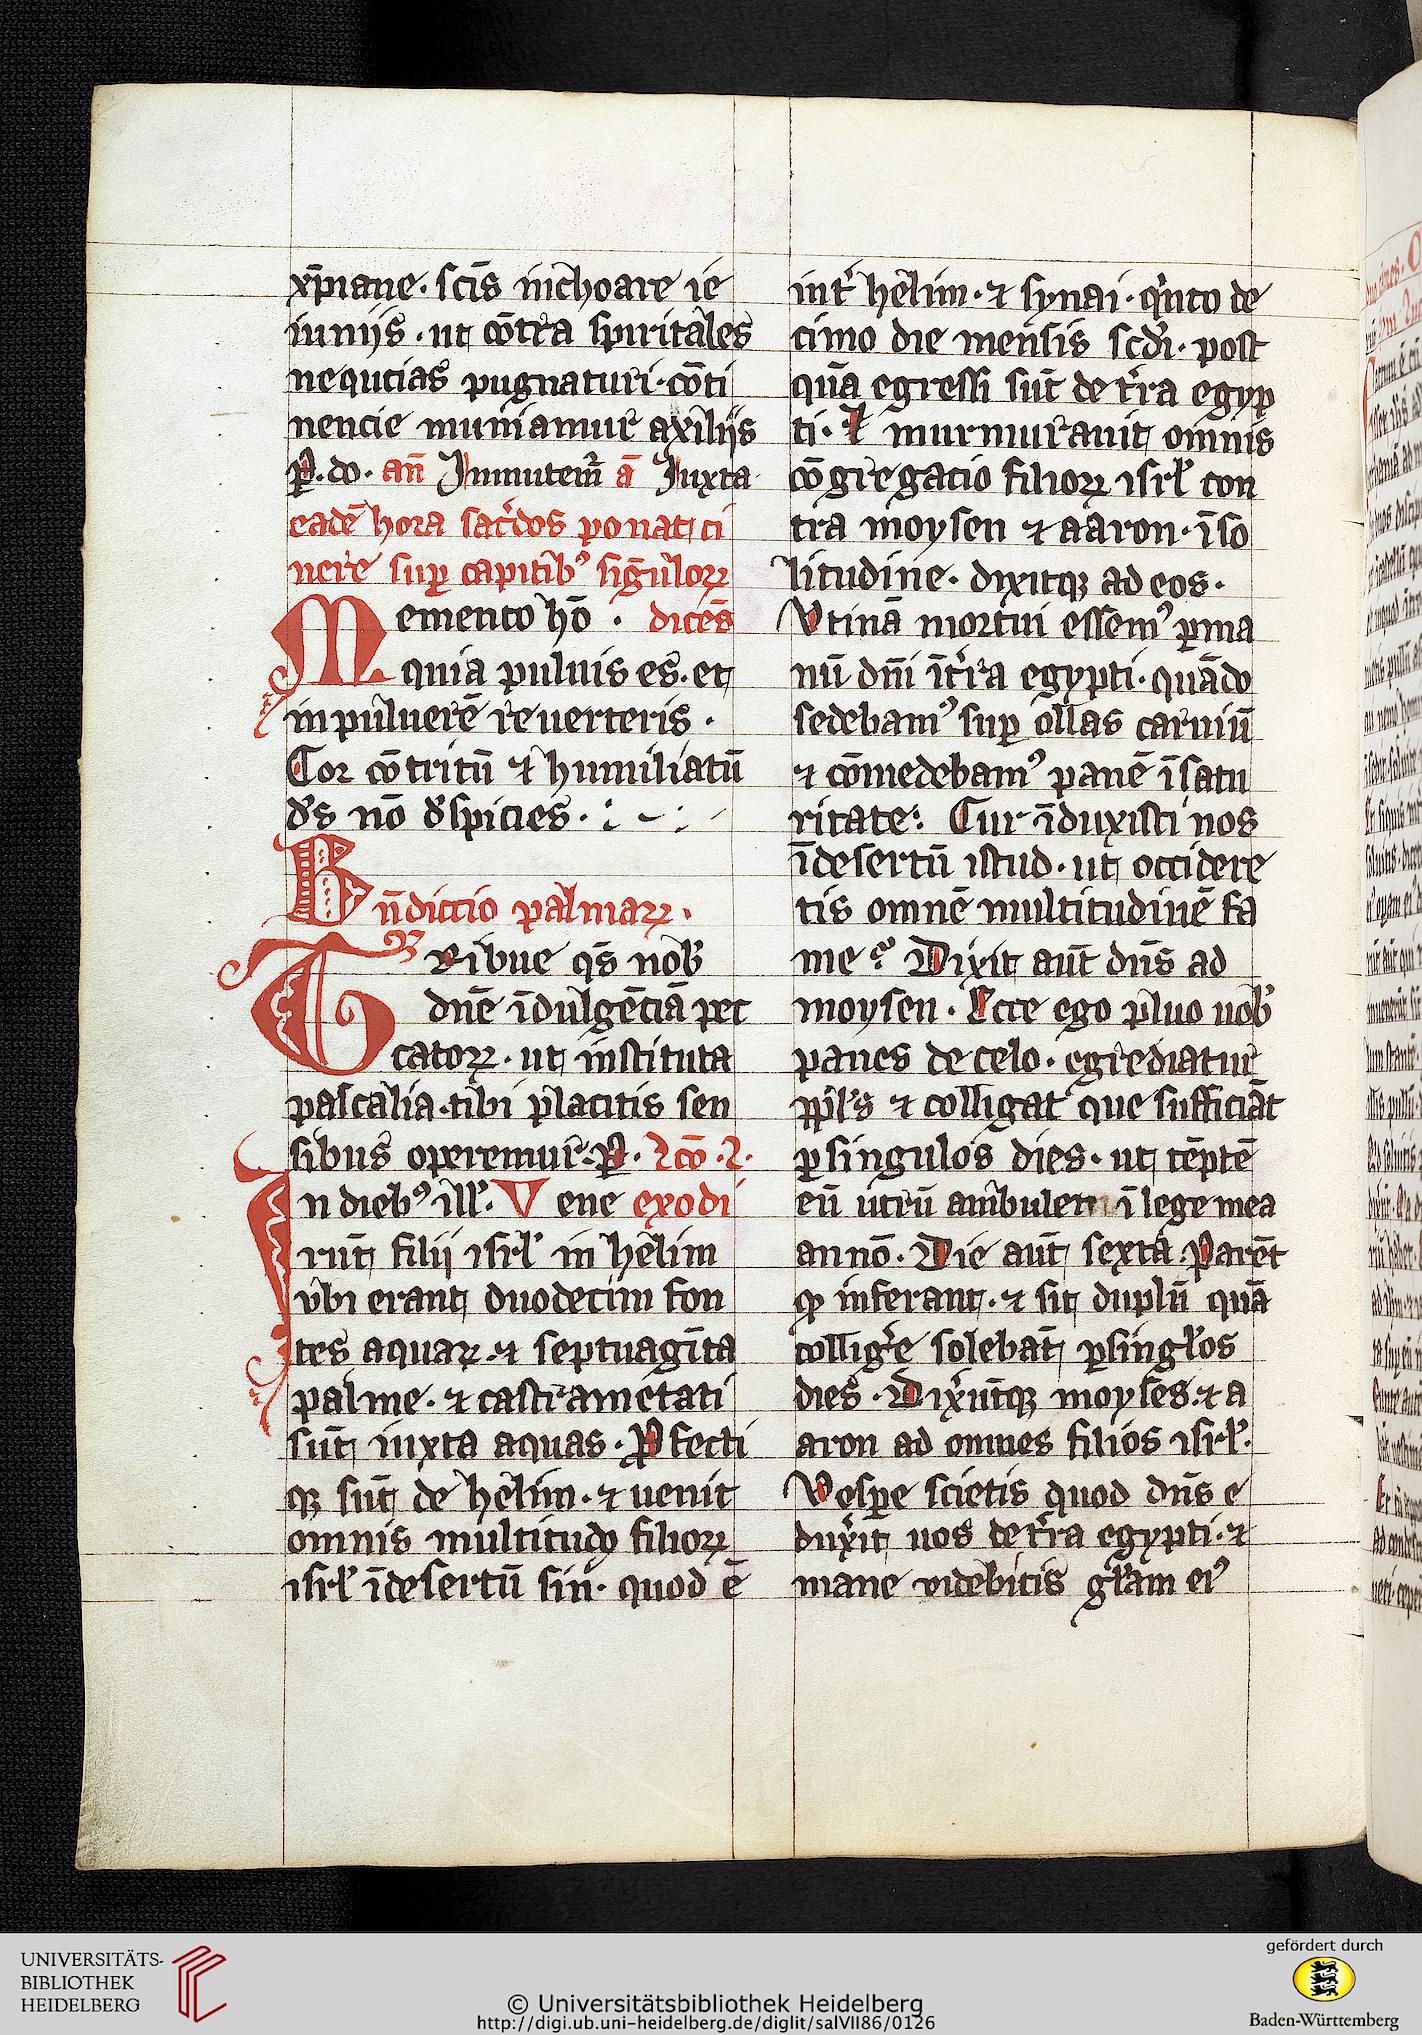 xp̄iane · scīs inchoare ie
iuniis · ut cōtra spiritales
nequicias pugnaturi · cōti
nencie muniamur axiliis
P̱ · do · an̄ Jnmutem̄ ā Juxta
eadē hora sac̄dos ponat ci
nere sup capitibꝰ singuloꝝ
Memento hō · dicēs
quia puluis es · et
in puluerē reuerteris ·
Cor cōtritū ⁊ humiliatū
ds̄ nō dspicies ·
Bn̄dictio palmaꝝ ·
Tribue qs̄ nob̄
dn̄e īdulgēciā pec
catoꝝ · ut instituta
pascalia · tibi placitis sen
sibus operemur · P̱ · Lc̄o · L ·
In diebꝰ ill̄ · Vene exodi
runt filii isrl̄ in helim
vbi erant duodecim fon
tes aquaꝝ · ⁊ septuagīta
palme · ⁊ castrametati
sūt iuxta aquas · Pfecti
qꝫ sūt de helim · ⁊ uenit
omnis multitudo filioꝝ
isrl̄ īdesertū sin · quod ē
int̄ helim · ⁊ synai · qinto de
cimo die mensis scd̄i · post
quā egressi sūt de t̄ra egyp
ti · Et murmurauit omnis
cōgregacio filioꝝ isrl̄ con
tra moysen ⁊ aaron · ī so
litudine · dixitqꝫ ad eos ·
Vtinā mortui essemꝰ p ma
nū dn̄i ī t̄ra egypti · quādo
sedebamꝰ sup ollas carniū
⁊ cōmedebamꝰ panē ī satu
ritate · Cur īduxisti nos
ī desertū istud · ut occidere
tis omnē multitudinē fa
me · Dixit aut̄ dn̄s ad
moysen · Ecce ego pluo uob̄
panes de celo · egrediatur
ppl̄s ⁊ colligat que sufficiāt
p singulos dies · ut tēptē
eū utrū ambulet ī lege mea
an nō · Die aut̄ sexta · Parēt
qꝫ inferant · ⁊ sit duplū quā
colliḡe solebat p singl̄os
dies · Dixr̄ūtqꝫ moyses · ⁊ a
aron ad omnes filios isrl̄ ·
Vespe scietis quod dn̄s e
duxit uos de t̄ra egypti · ⁊
mane videbitis gl̄am eiꝰ
UNIVERSITÄTS-
BIBLIOTHEK
HEIDELBERG
© Universitätsbibliothek Heidelberg
http://digi.ub.uni-heidelberg.de/diglit/salVII86/0126
gefördert durch
Baden-Württemberg